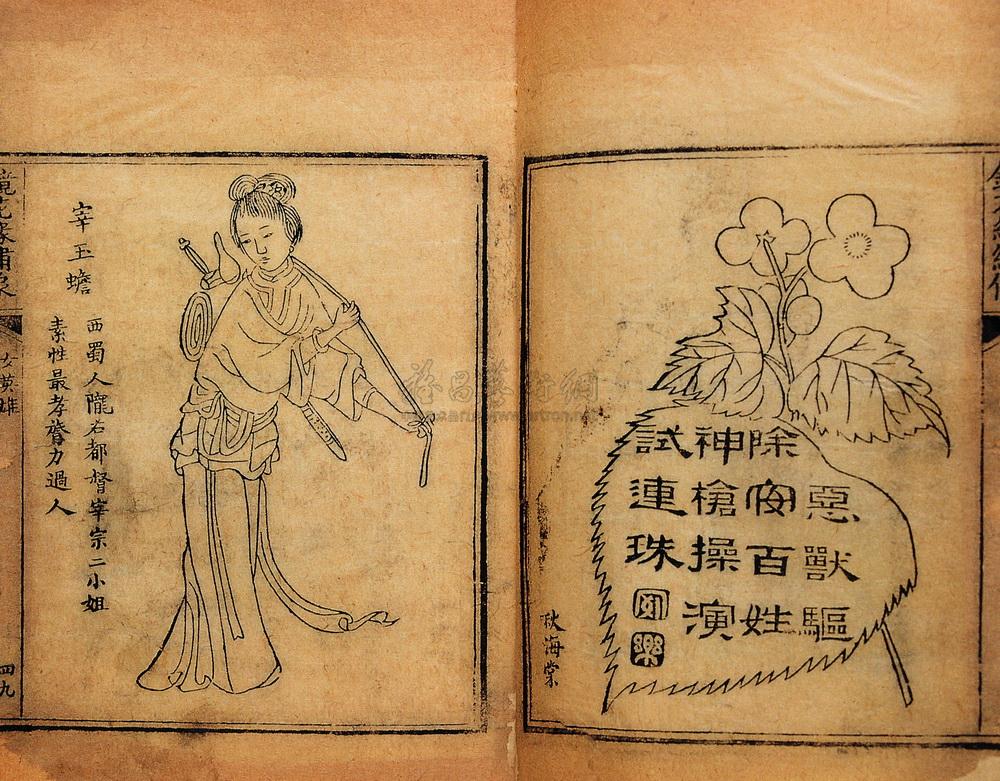 惡獸驅
除安百姓
神槍操演
試連珠
秋海棠
宰玉蟾
西蜀人隴右都督宰宗二小姐
素性最孝膂力過人
鏡花緣繡像
女英雄
四九